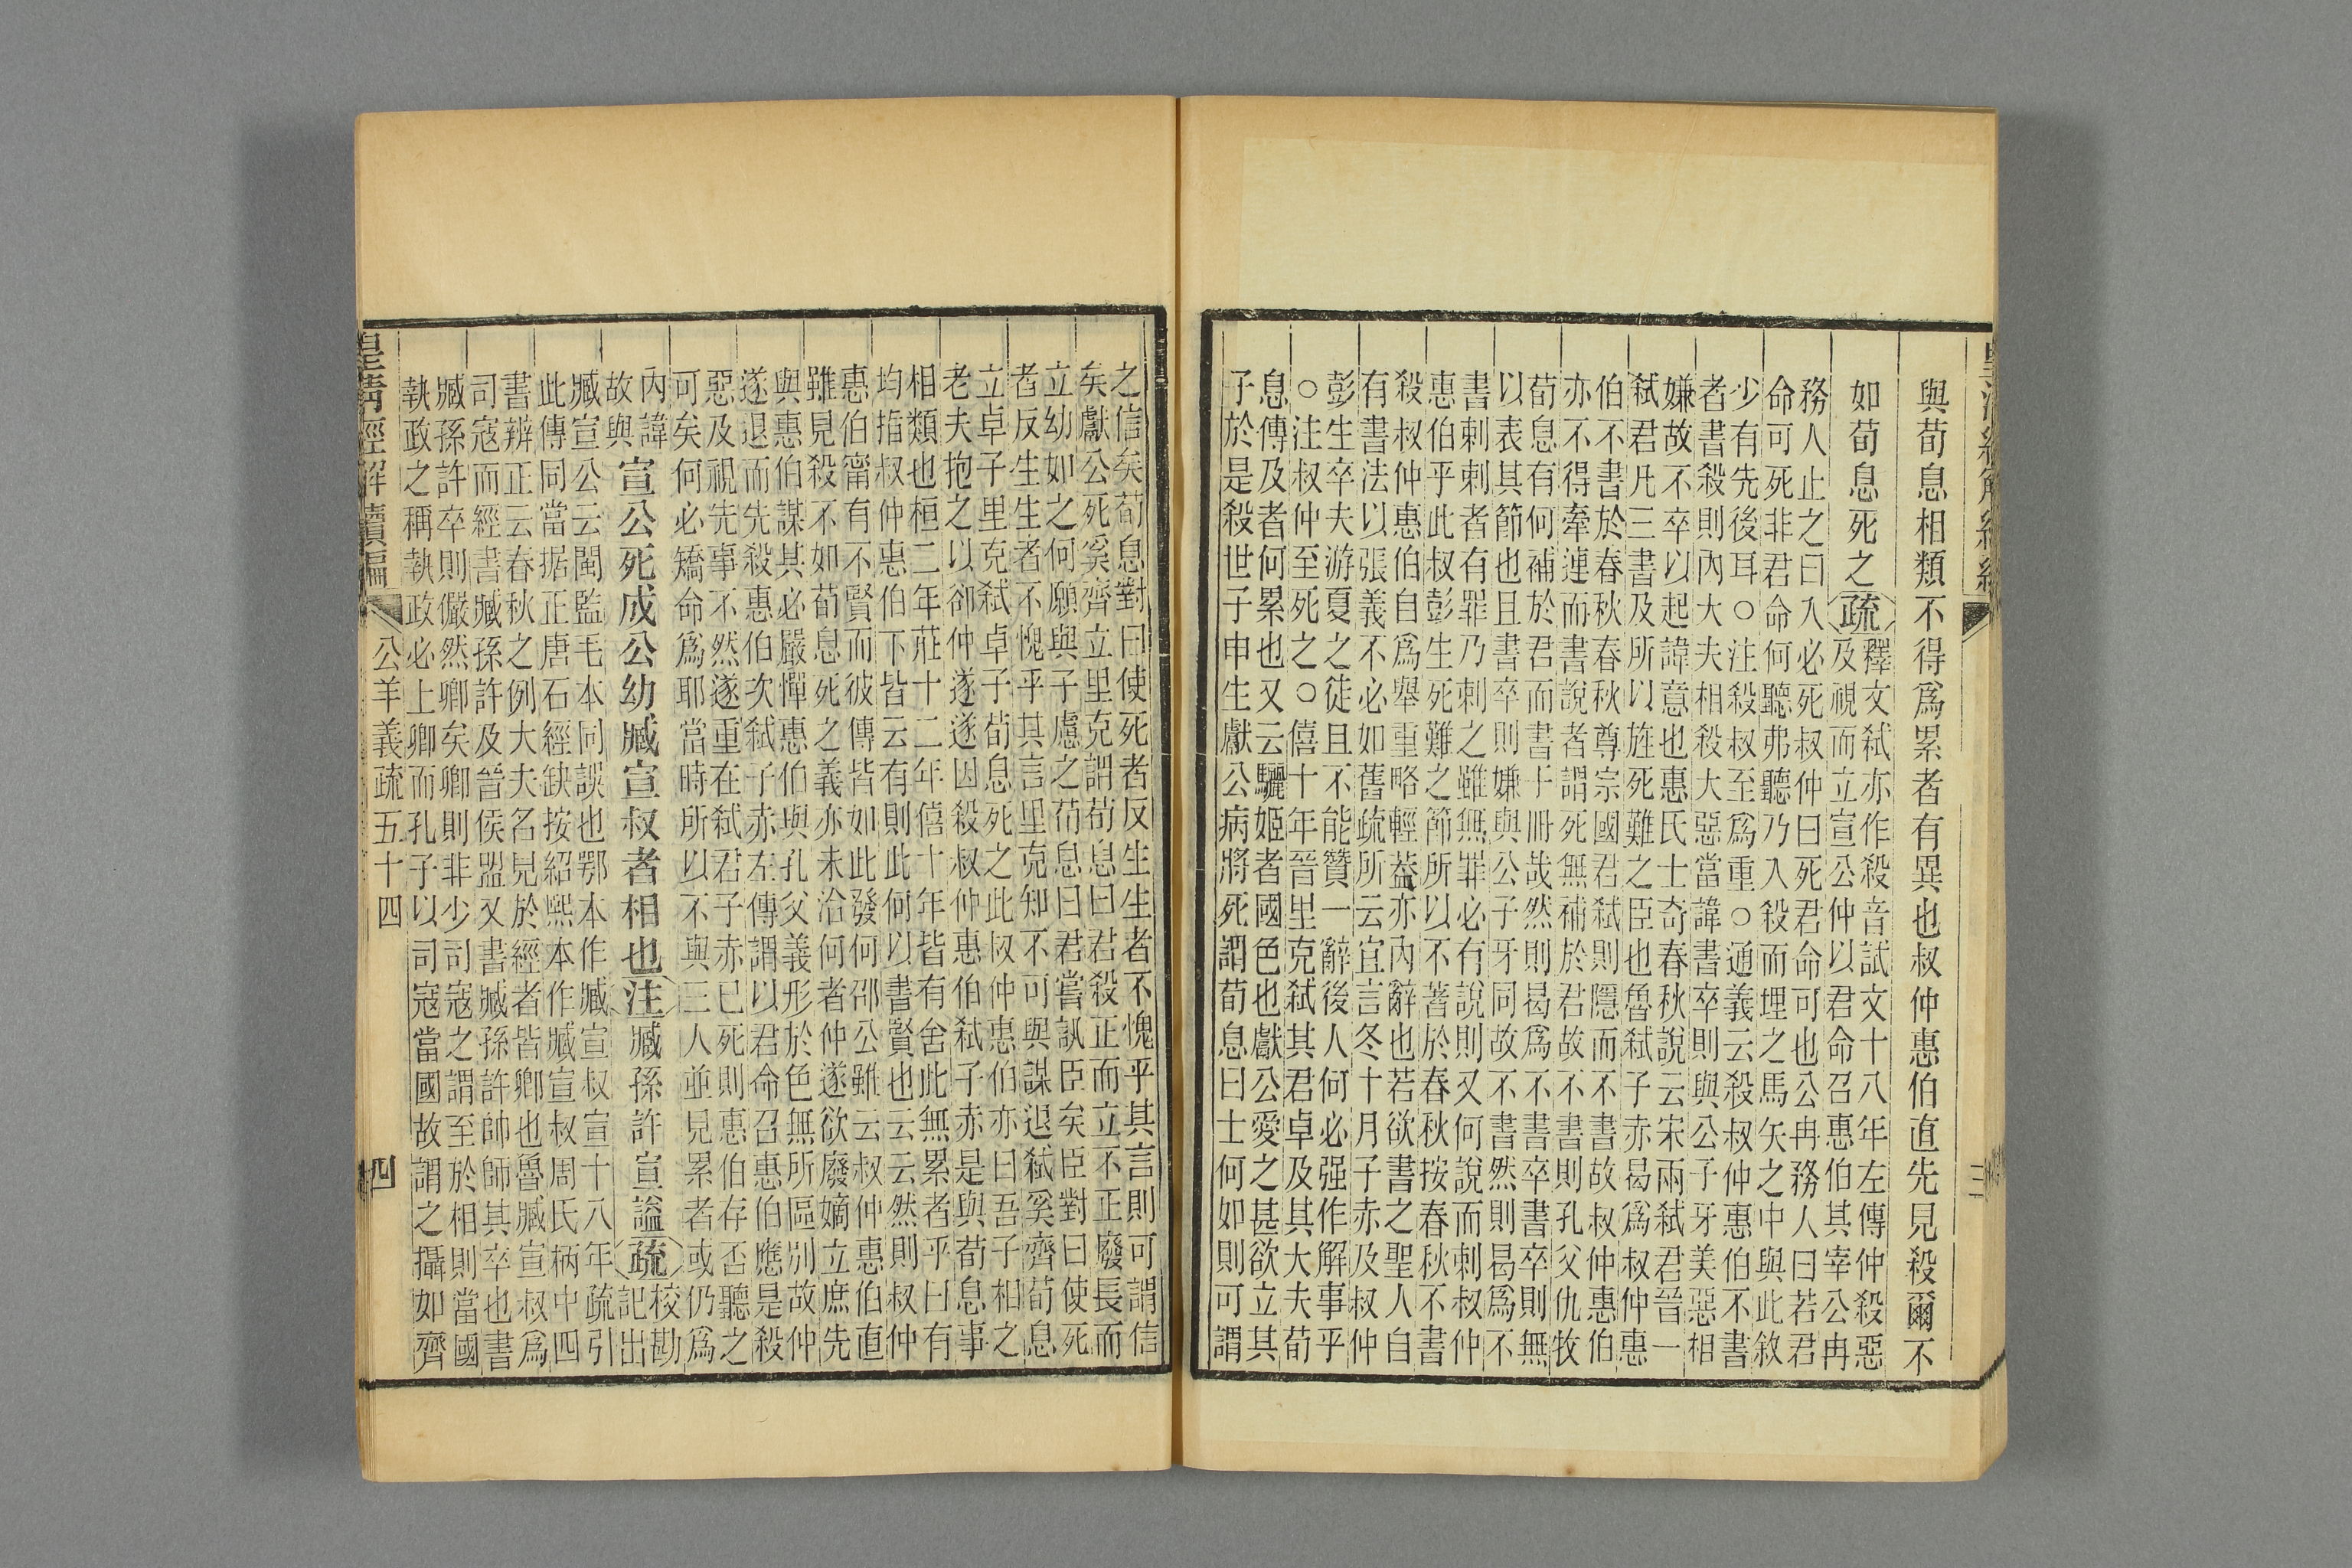 與荀息相類不得爲累者有異也叔仲惠伯直先見殺爾不
如荀息死之疏釋文弑亦作殺音試文十八年左傳仲殺惡
及視而立宣公仲以君命召惠伯其宰公冉
務人止之曰入必死叔仲曰死君命可也公冉務人曰若君
命可死非君命何聽弗聽乃入殺而埋之馬矢之中與此敘
少有先後耳○注殺叔至爲重○通義云殺叔仲惠伯不書
者書殺則內大夫相殺大惡當諱書卒則與公子牙美惡相
嫌故不卒以起諱意也惠氏士奇春秋說云宋兩弑君晉一
弑君凡三書及所以旌死難之臣也魯弑子赤曷爲叔仲惠
伯不書於春秋春秋尊宗國君弑則隱而不書故叔仲惠伯
亦不得牽連而書說者謂死無補於君故不書則孔父仇牧
荀息有何補於君而書于冊哉然則曷爲不書卒書卒則無
以表其節也且書卒則嫌與公子牙同故不書然則曷爲不
書刺刺者有罪乃刺之雖無罪必有說則又何說而刺叔仲
惠伯乎此叔彭生死難之節所以不著於春秋按春秋不書
殺叔仲惠伯自爲舉重略輕葢亦內辭也若欲書之聖人自
有書法以張義不必如舊疏所云宜言冬十月子赤及叔仲
彭生卒夫游夏之徒且不能贊一辭後人何必强作解事乎
○注叔仲至死之○僖十年晉里克弑其君卓及其大夫荀
息傳及者何累也又云驪姬者國色也獻公愛之甚欲立其
子於是殺世子申生獻公病將死謂荀息曰士何如則可謂
之信矣荀息對曰使死者反生生者不愧乎其言則可謂信
矣獻公死奚齊立里克謂荀息曰君殺正而立不正廢長而
立幼如之何願與子慮之荀息曰君嘗訊臣矣臣對曰使死
者反生生者不愧乎其言里克知不可與謀退弑奚齊荀息
立卓子里克弑卓子荀息死之此叔仲惠伯亦曰吾子相之
老夫抱之以卻仲遂遂因殺叔仲惠伯弑子赤是與荀息事
相類也桓二年莊十二年僖十年皆有舍此無累者乎曰有
均指叔仲惠伯下皆云有則此何以書賢也云云然則叔仲
惠伯甯有不賢而彼傳皆如此發何邵公雖云叔仲惠伯直
雖見殺不如荀息死之義亦未洽何者仲遂欲廢嫡立庶先
與惠伯謀其必嚴憚惠伯與孔父義形於色無所區別故仲
遂退而先殺惠伯次弑子赤左傳謂以君命召惠伯應是殺
惡及視先事不然遂重在弑君子赤已死則惠伯存否聽之
可矣何必矯命爲耶當時所以不與三人並見累者或仍爲
內諱
故與宣公死成公幼臧宣叔者相也注臧孫許宣謚疏校勘
記出
臧宣公云閩監毛本同誤也鄂本作臧宣叔宣十八年疏引
此傳同當据正唐石經缺按紹熙本作臧宣叔周氏柄中四
書辨正云春秋之例大夫名見於經者皆卿也魯臧宣叔爲
司寇而經書臧孫許及晉侯盟又書臧孫許帥師其卒也書
臧孫許卒則儼然卿矣卿則非少司寇之謂至於相則當國
執政之稱執政必上卿而孔子以司寇當國故謂之攝如齊
皇清經解續編
公羊義疏五十四
四